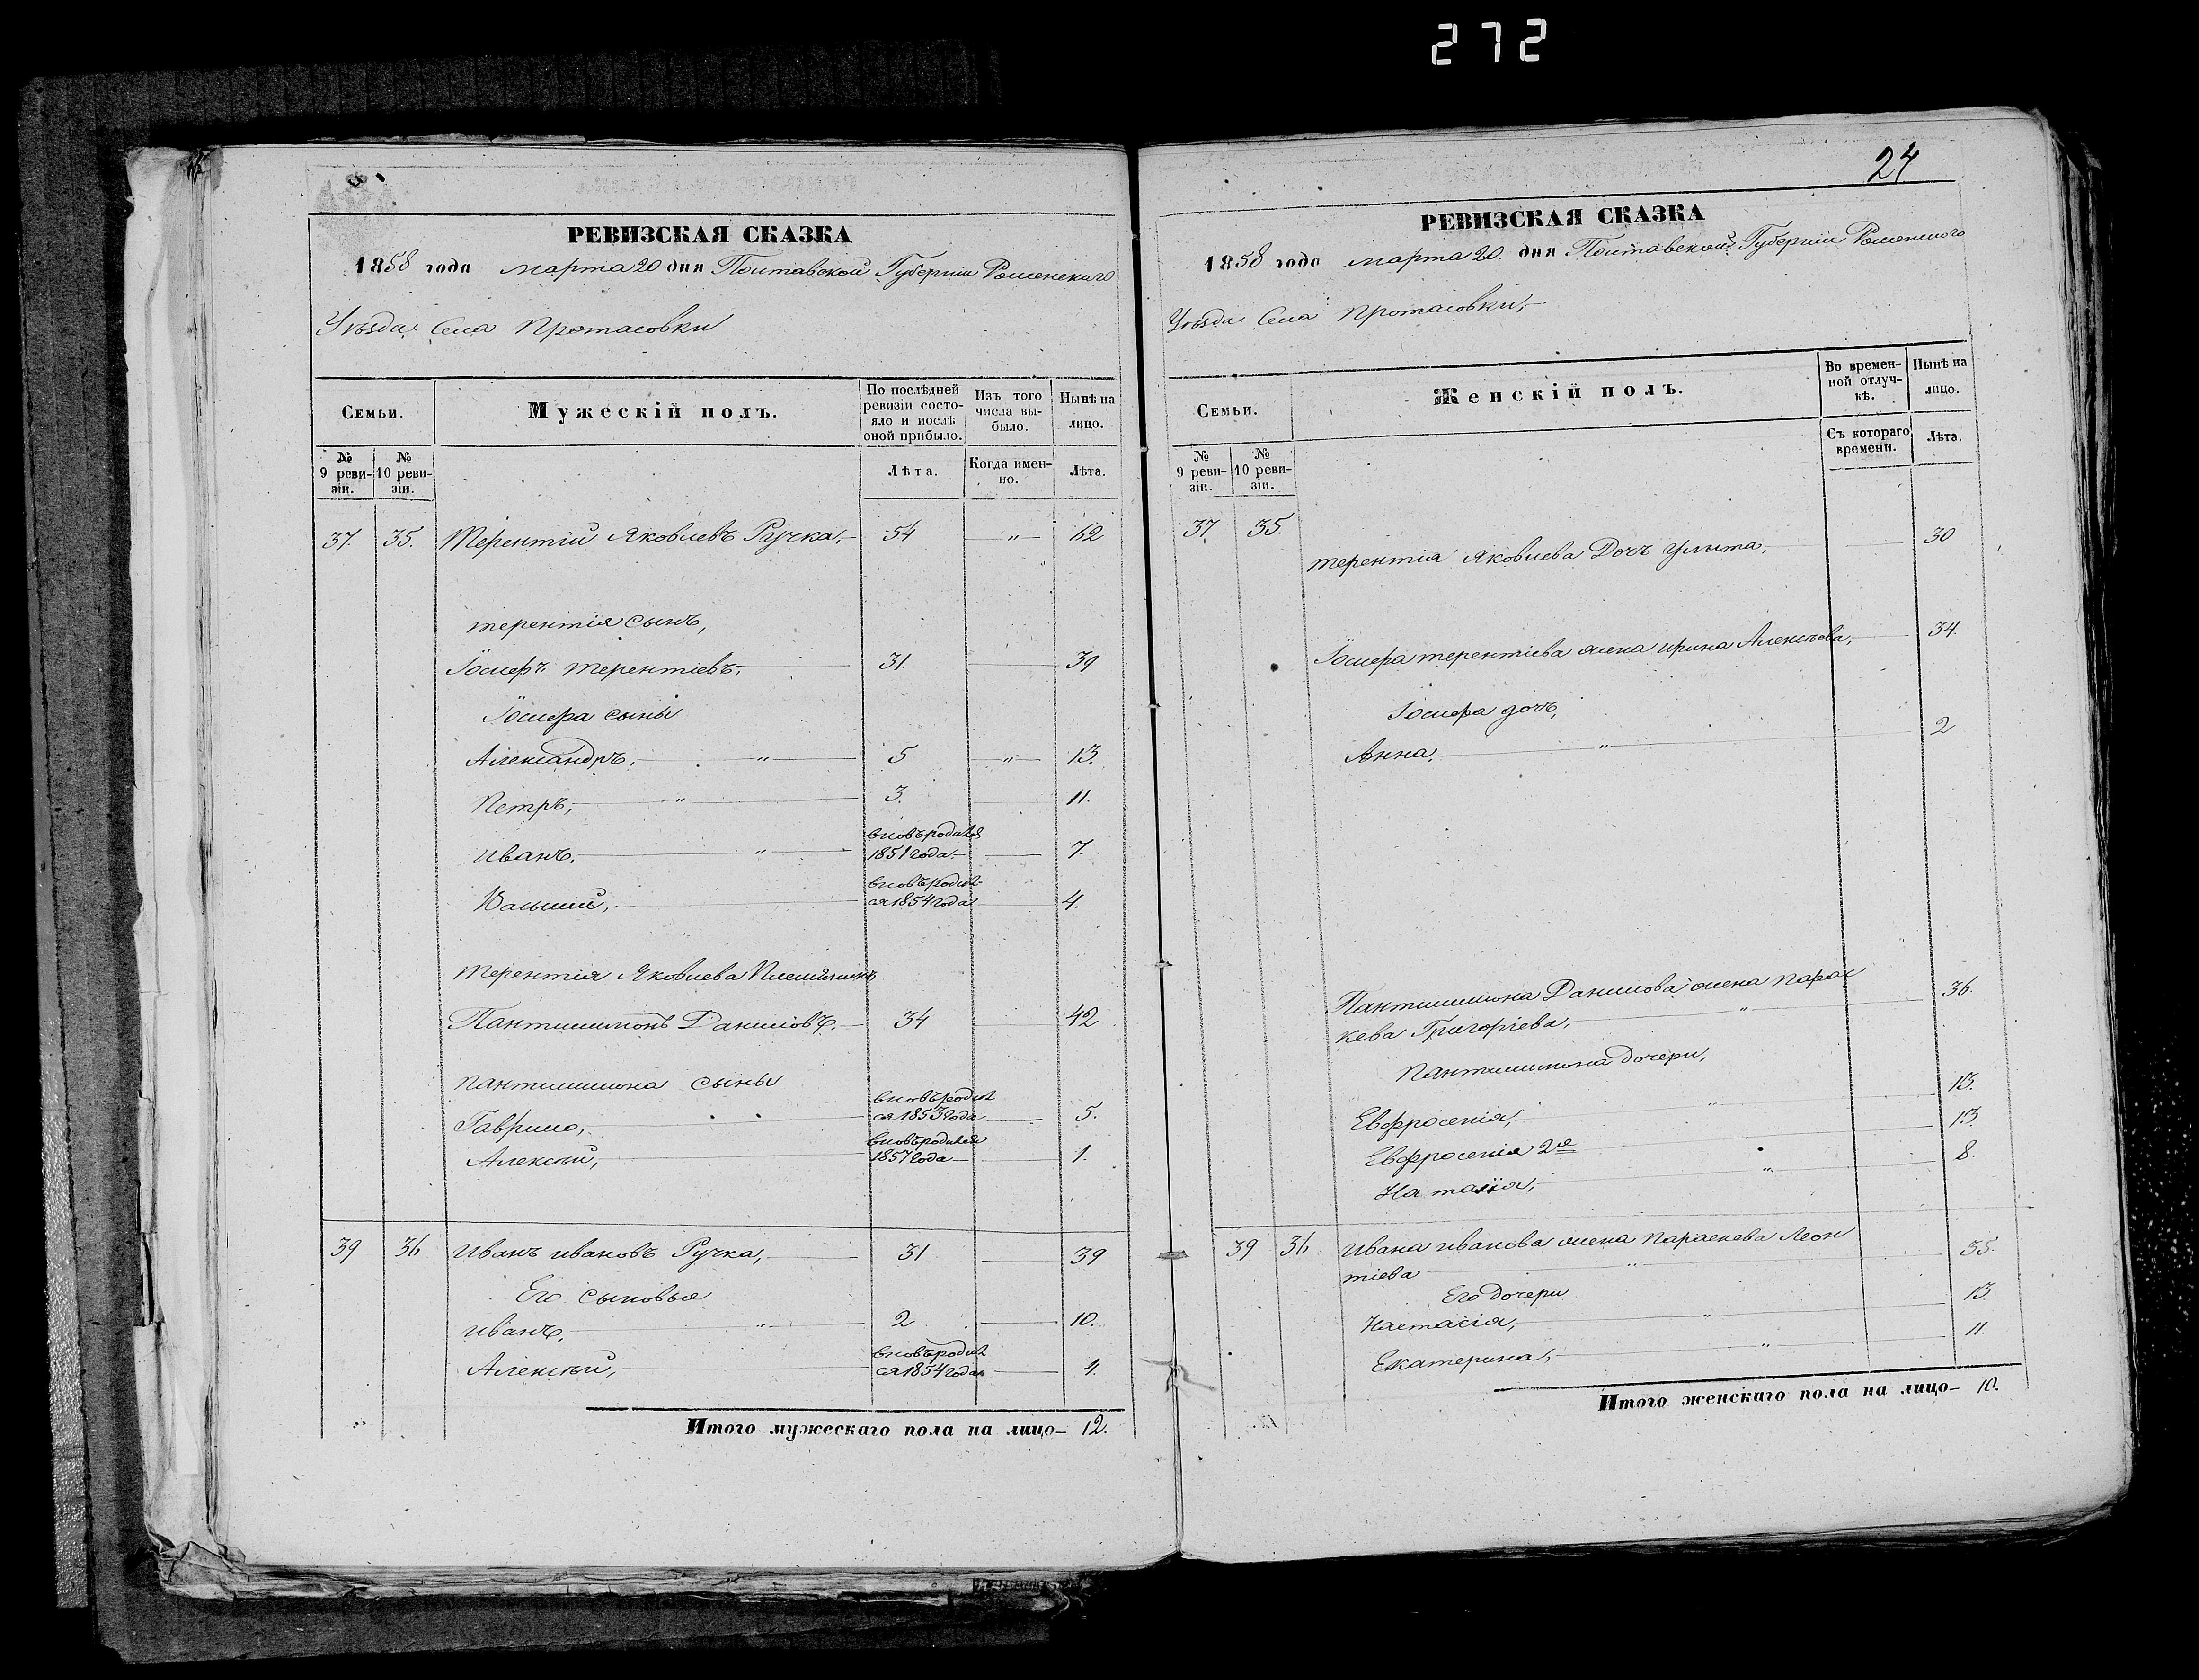 272
РЕВИЗСКАЯ СКАЗКА
1858 года марта 20 дня Полтавской Губерніи Роменскаго
Уѣзда Села Протасовки
Семьи.
Мужескій полъ.
По послѣдней ревизіи состо-
яло и послѣ оной прибыло.
Изъ того числа вы-
было.
Нынѣ на лицо.
№ 9 реви-
зіи.
№ 10 реви-
зіи.
Лѣта.
Когда имен-
но.
Лѣта.
37. 35. Терентій Яковлевъ Ручка, 54 " 62
терентія сынъ,
Іосифъ терентіевъ, 31. 39
Іосифа сыны
Александръ, " 5 " 13.
Петръ, " 3. 11.
Иванъ, " вновь родился
1851 года 7.
Василий, вновь родил-
ся 1854 года 4.
терентія Яковлева Племянникъ
Пантилимонъ Даниловъ, 34 42
пантилимона сыны
Гаврило, вновь родил
ся 1853 года 5.
Алексѣй, вновь родился
1857 года 1.
39 36 Иванъ ивановъ Ручка, 31 39
Его сыновья
иванъ, " 2 10.
Алексѣй, вновь родил
ся 1854 года 4.
Итого мужескаго пола на лицо— 12.
24
РЕВИЗСКАЯ СКАЗКА
1858 года марта 20 дня Полтавской Губерніи Роменского
Уѣзда Села Протасовки,
Семьи.
Женскій полъ.
Во времен-
ной отлуч-
кѣ.
Нынѣ на лицо.
№ 9 реви-
зіи.
№ 10 реви-
зіи.
Съ котораго времени.
Лѣта.
37 35.
терентія Яковлева Дочь Улита, 30
Іосифа терентіева жена ирина Алексѣева, 34.
Іосифа дочь,
Анна, " 2
Пантилимона Данилова жена парас
кева Григоріева, " 36.
Пантилимона дочери,
Евфросенія, " 13.
Евфросенія 2я 13.
Наталія, " 8.
39 36 ивана иванова жена параскева Леон
тіева " 35.
Его дочери
Настасія, " 13.
Екатерина, " 11.
Итого женскаго пола на лицо— 10.